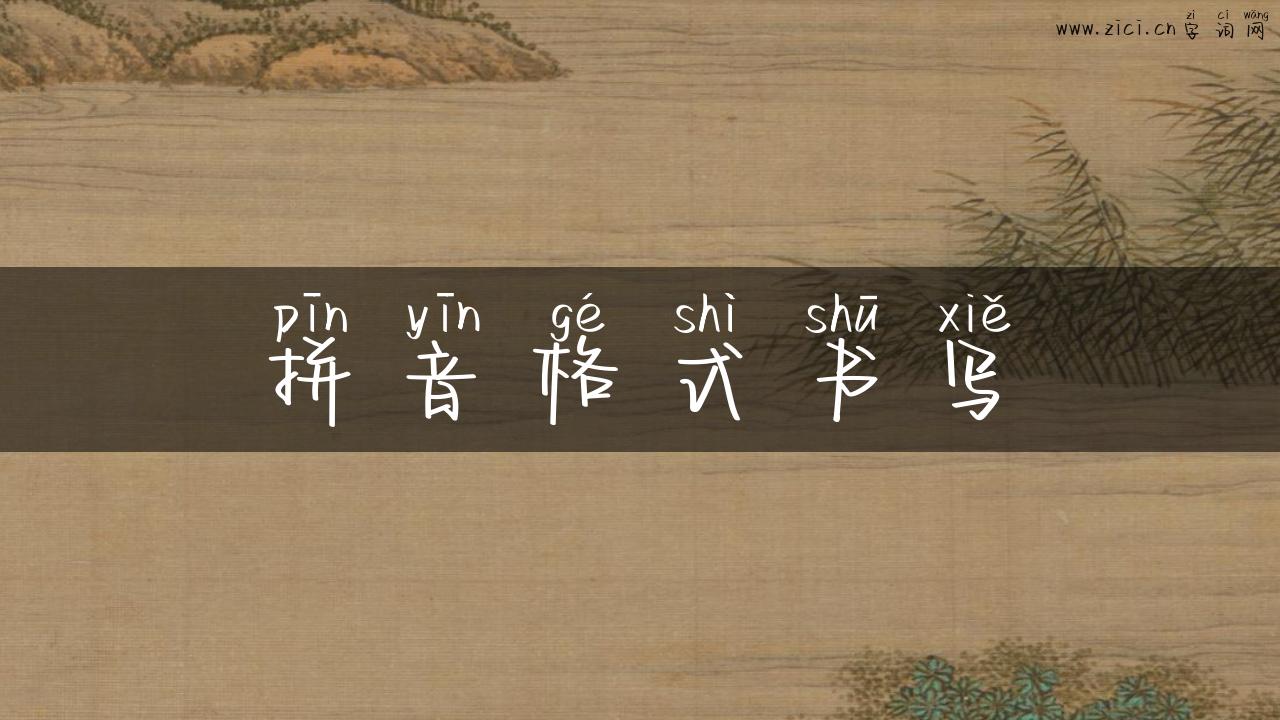 zì cí wǎng
www.zici.cn 字词网
pīn yīn gé shì shū xiě
拼音格式书写